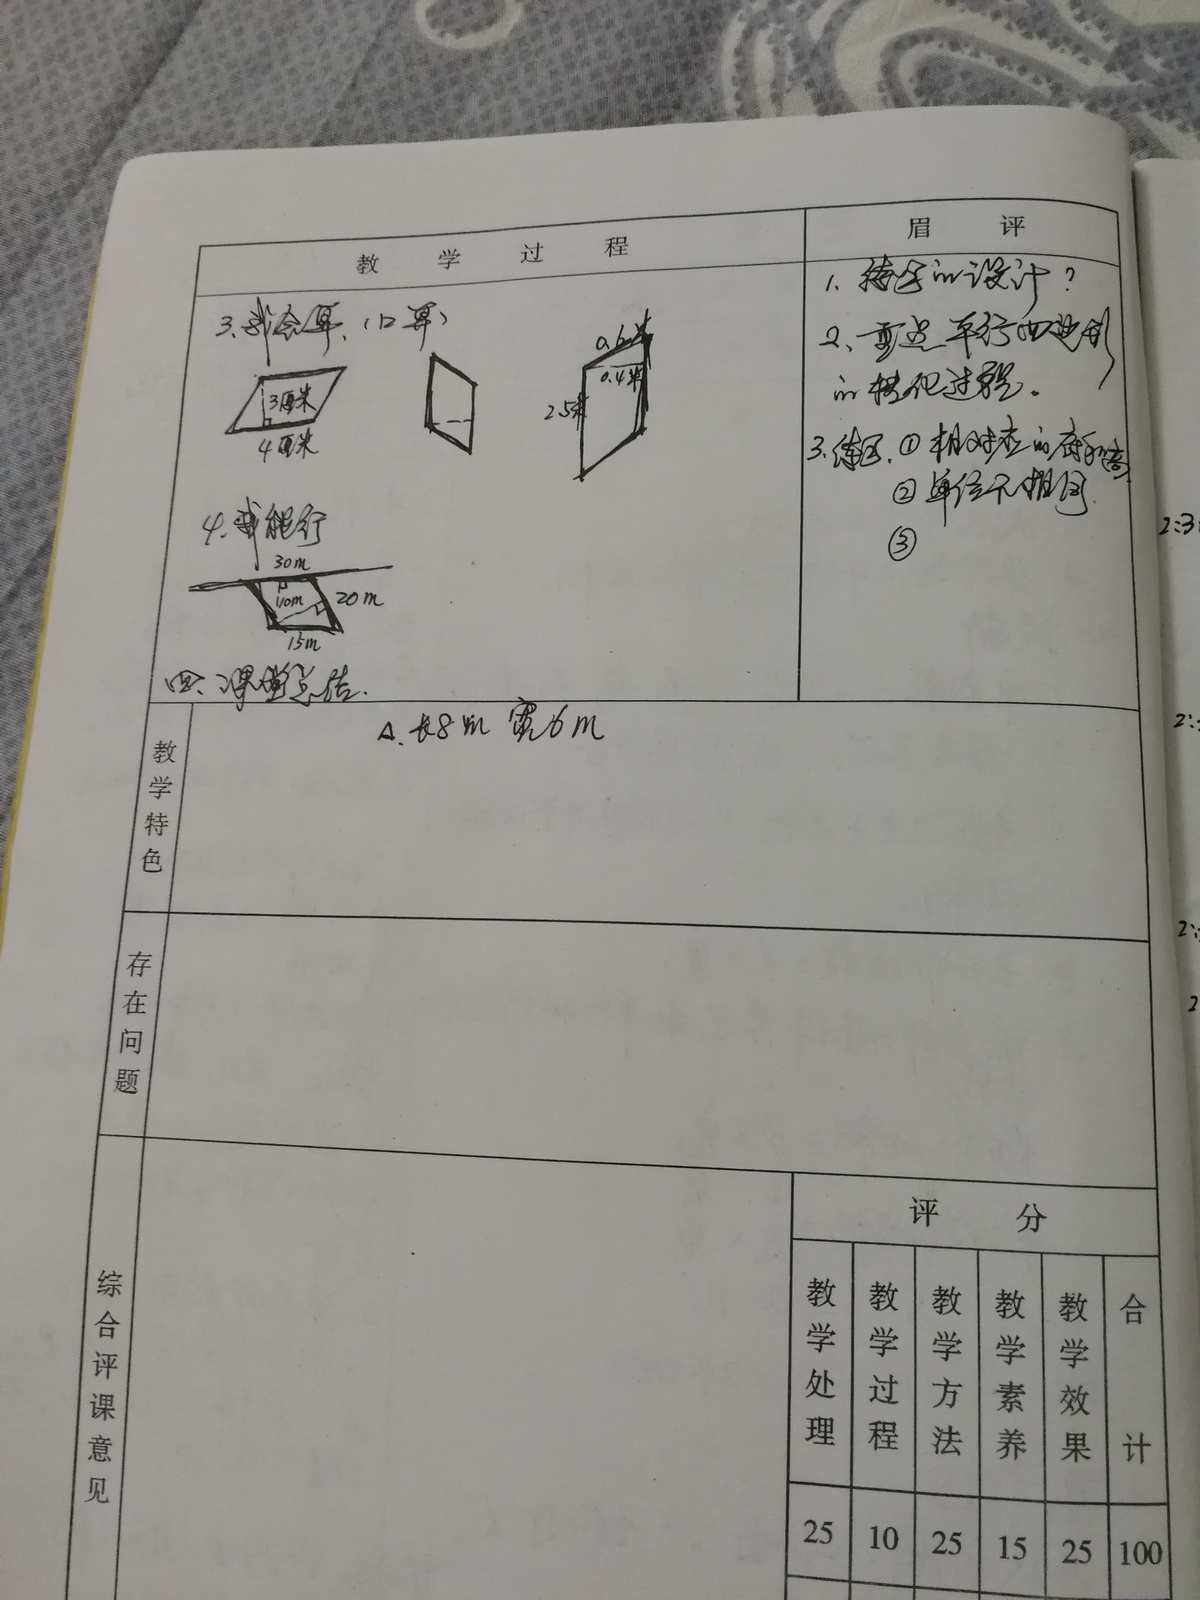 教学过程
眉评
3、我会算、(口算)
3厘米
4厘米
0.6米
0.4米
2.5米
4、我能行
30m
10m
20m
15m
四、课堂总结.
1、练习的设计?
2、重点平行四边形
的转化过程。
3、练习.①相对应的底和高
②单位不相同
③
教学特色
A.长8m 宽6m
存在问题
综合评课意见
评分
教学处理
教学过程
教学方法
教学素养
教学效果
合计
25 10 25 15 25 100
2:3
2:
2:
2